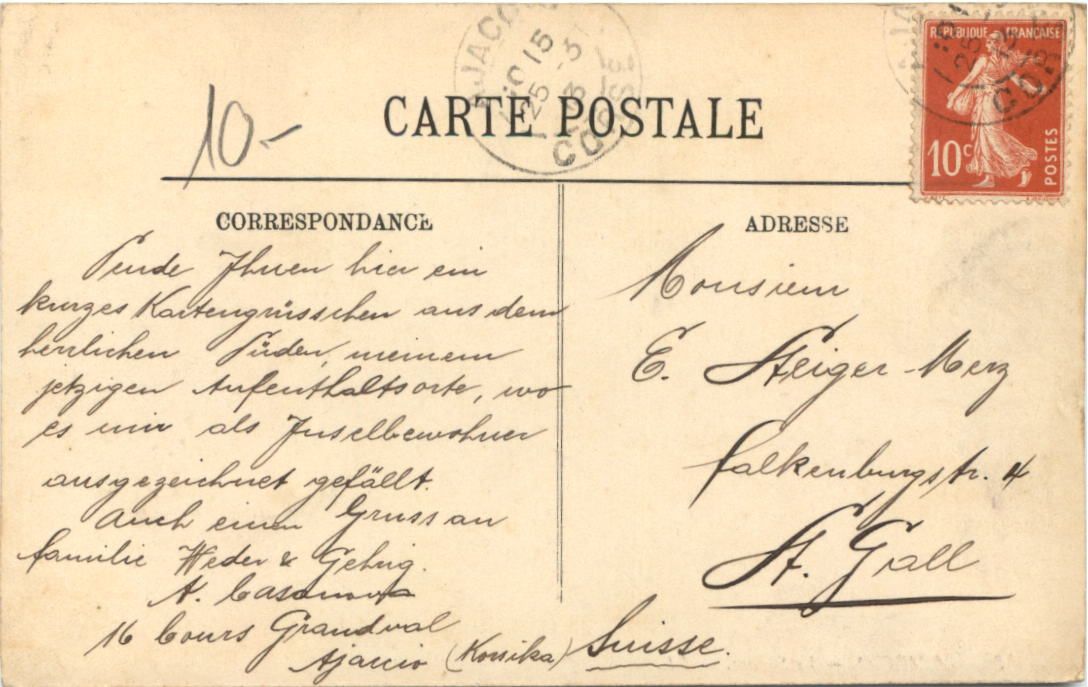 10-
CARTE POSTALE
AJACCIO
15
25 -3
13
CORSE
REPUBLIQUE FRANÇAISE
10c
POSTES
CORRESPONDANCE
Sende Ihnen hier ein
kurzes Kartengrüsschen aus dem
herrlichen Süden, meinem
jetzigen Aufenthaltsorte, wo
es mir als Inselbewohner
ausgezeichnet gefällt.
Auch einen Gruss an
Familie Weder & Gehrig.
A. Casanova
16 Cours Grandval
Ajaccio (Korsika)
ADRESSE
Monsieur
E. Steiger-Merz
Falkenburgstr. 4
St. Gall
Suisse.